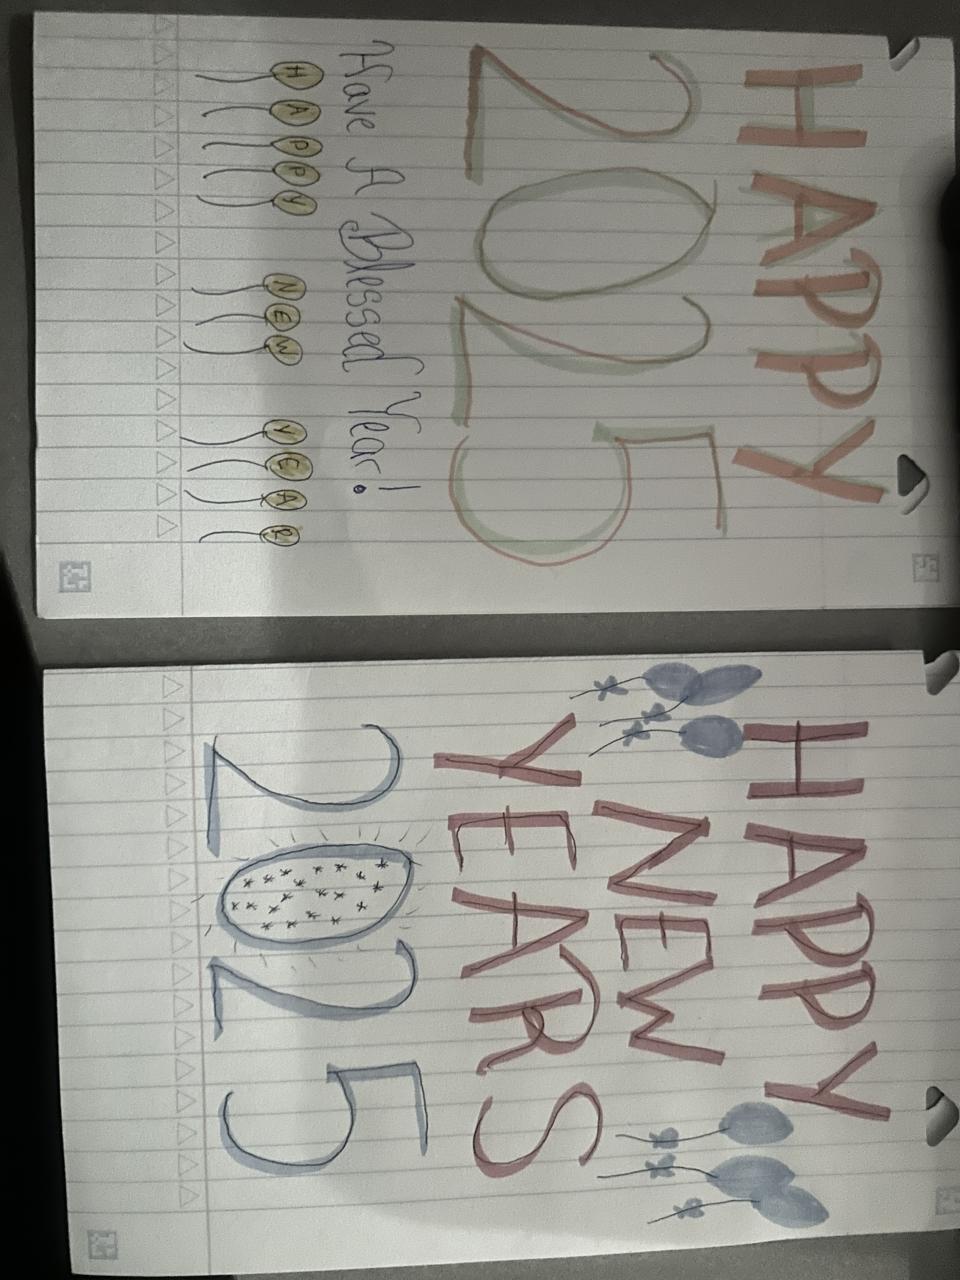 HAPPY
2025
Have A Blessed Year!
HAPPY NEW YEAR
HAPPY
NEW
YEARS
2025